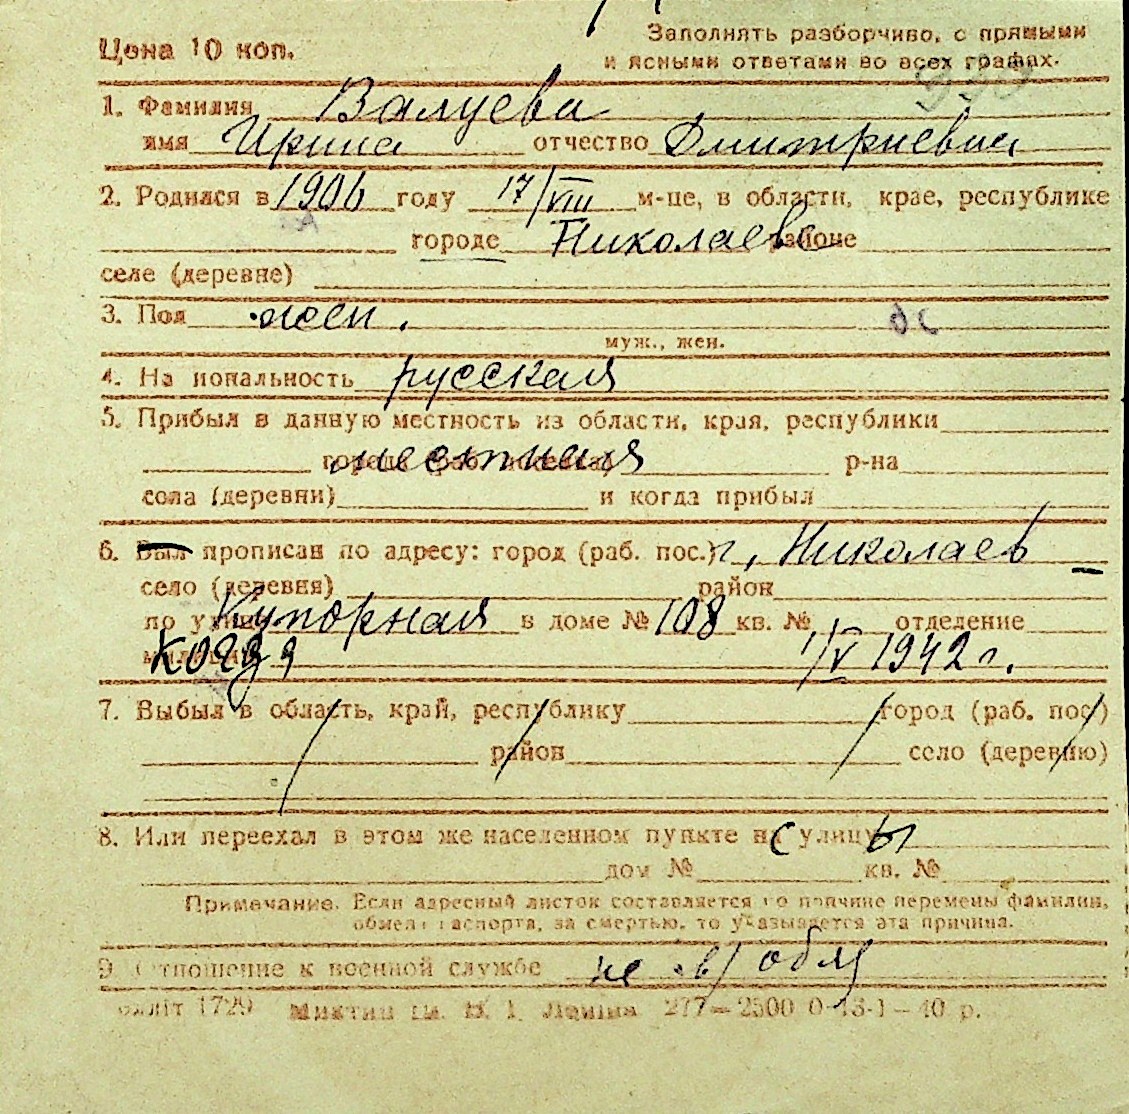 Цена 10 коп.
Заполнять разборчиво, с прямыми
и ясными ответами во всех графах.
1. Фамилия Валуева
имя Ирина отчество Дмитриевна
2. Родился в 1906 году 17/VIII м-це, в области, крае, республике
городе Николаеве районе
селе (деревне)
3. Пол жен.
муж., жен.
4. На иональность русская
5. Прибыл в данную местность из области, края, республики
города местная р-на
села (деревни) и когда прибыл
6. Был прописан по адресу: город (раб. пос.) г. Николаев
село (деревня) район
по улице Купорная в доме № 108 кв. № отделение
когда 1/V 1942 г.
7. Выбыл в область, край, республику город (раб. пос.)
район село (деревню)
8. Или переехал в этом же населенном пункте на с улицы
дом № кв. №
Примечание. Если адресный листок составляется по причине перемены фамилии,
обмена паспорта, за смертью, то указывается эта причина.
9. Отношение к военной службе не в/обяз
1729 277—2500 0-13-1—40 р.